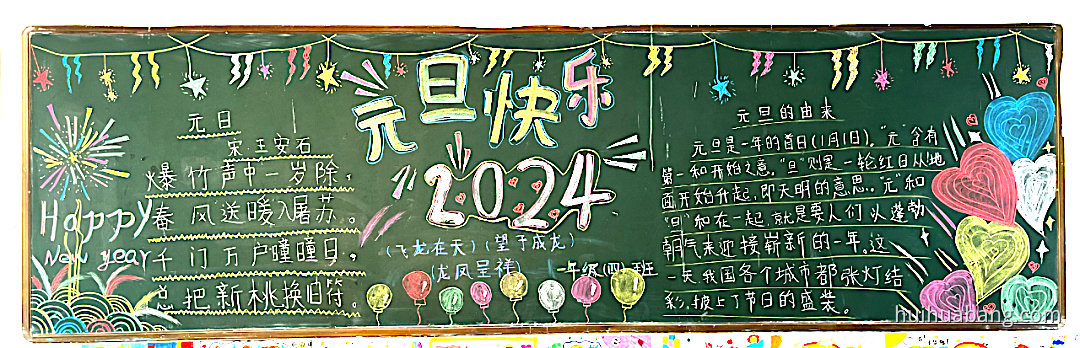 元旦
宋 王安石
爆竹声中一岁除，
春风送暖入屠苏。
千门万户曈曈日，
总把新桃换旧符。
Happy
New year
元旦快乐
2024
(飞龙在天)(望子成龙)
(龙凤呈祥)
一年级(四)班
元旦的由来
元旦是一年的首日(1月1日)，"元"含有
第一和开始之意，"旦"则是一轮红日从地
面开始升起，即天明的意思。"元"和
"旦"和在一起就是要人们以蓬勃
朝气来迎接崭新的一年。这
一天我国各个城市都张灯结
彩，披上了节日的盛装。
huihuabang.com